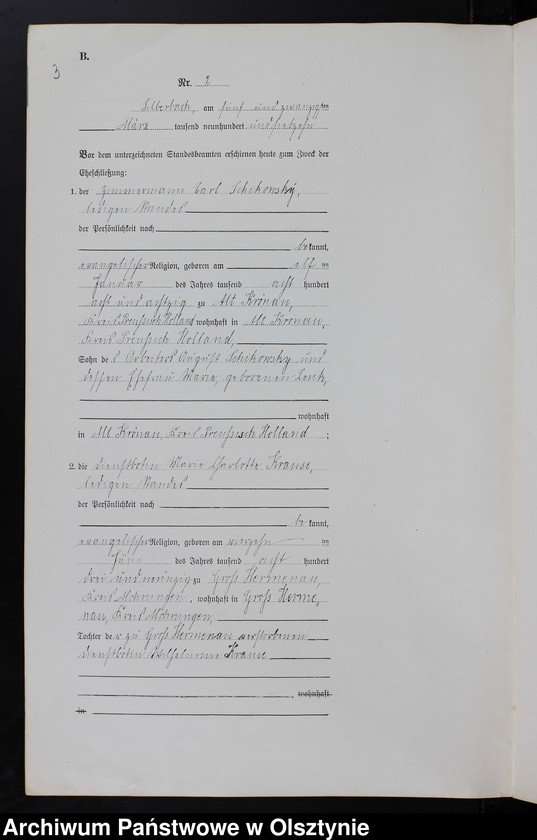 B.
3
Nr. 2
Silberbach, am fünf und zwanzigsten
März tausend neunhundert und siebzehn
Vor dem unterzeichneten Standesbeamten erschienen heute zum Zweck der
Eheschließung:
1. der Zimmermann Carl Schikowsky,
ledigen Standes
der Persönlichkeit nach
bekannt,
evangelischer Religion, geboren am elften
Januar des Jahres tausend acht hundert
acht und achtzig zu Alt Krönau,
Kreis Preußisch Holland wohnhaft in Alt Krönau,
Kreis Preußisch Holland,
Sohn des Arbeiters August Schikowsky und
dessen Ehefrau Marie, geborenen Lenk,
wohnhaft
in Alt Krönau, Kreis Preussisch Holland ;
2. die Dienstbotin Marie Charlotte Krause,
ledigen Standes
der Persönlichkeit nach
bekannt,
evangelischer Religion, geboren am vierzehn ten
Juni des Jahres tausend acht hundert
drei und neunzig zu Groß Hermenau,
Kreis Mohrungen, wohnhaft in Groß Herme,
nau, Kreis Mohrungen,
Tochter der zu Groß Hermenau verstorbenen
Dienstbotin Wilhelmine Krause
wohnhaft
in
Archiwum Państwowe w Olsztynie